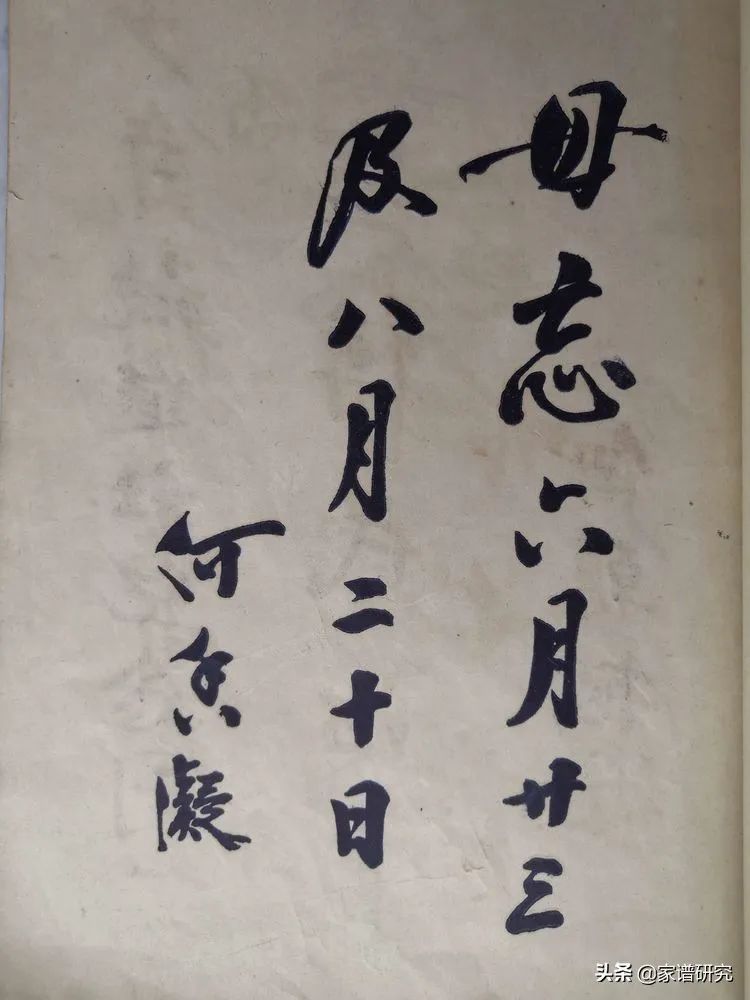 毋忘六月廿三
及八月二十日
何香凝
头条 @家谱研究